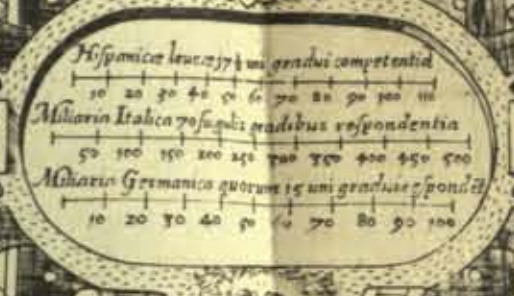 Hispanicæ leucæ 17½ uni gradui competentia
10 20 30 40 50 60 70 80 90 100 110
Miliaria Italica 70 gradibus respondentia
50 100 150 200 250 300 350 400 450 500
Miliaria Germanica quorum 15 uni gradui respondēt
10 20 30 40 50 60 70 80 90 100